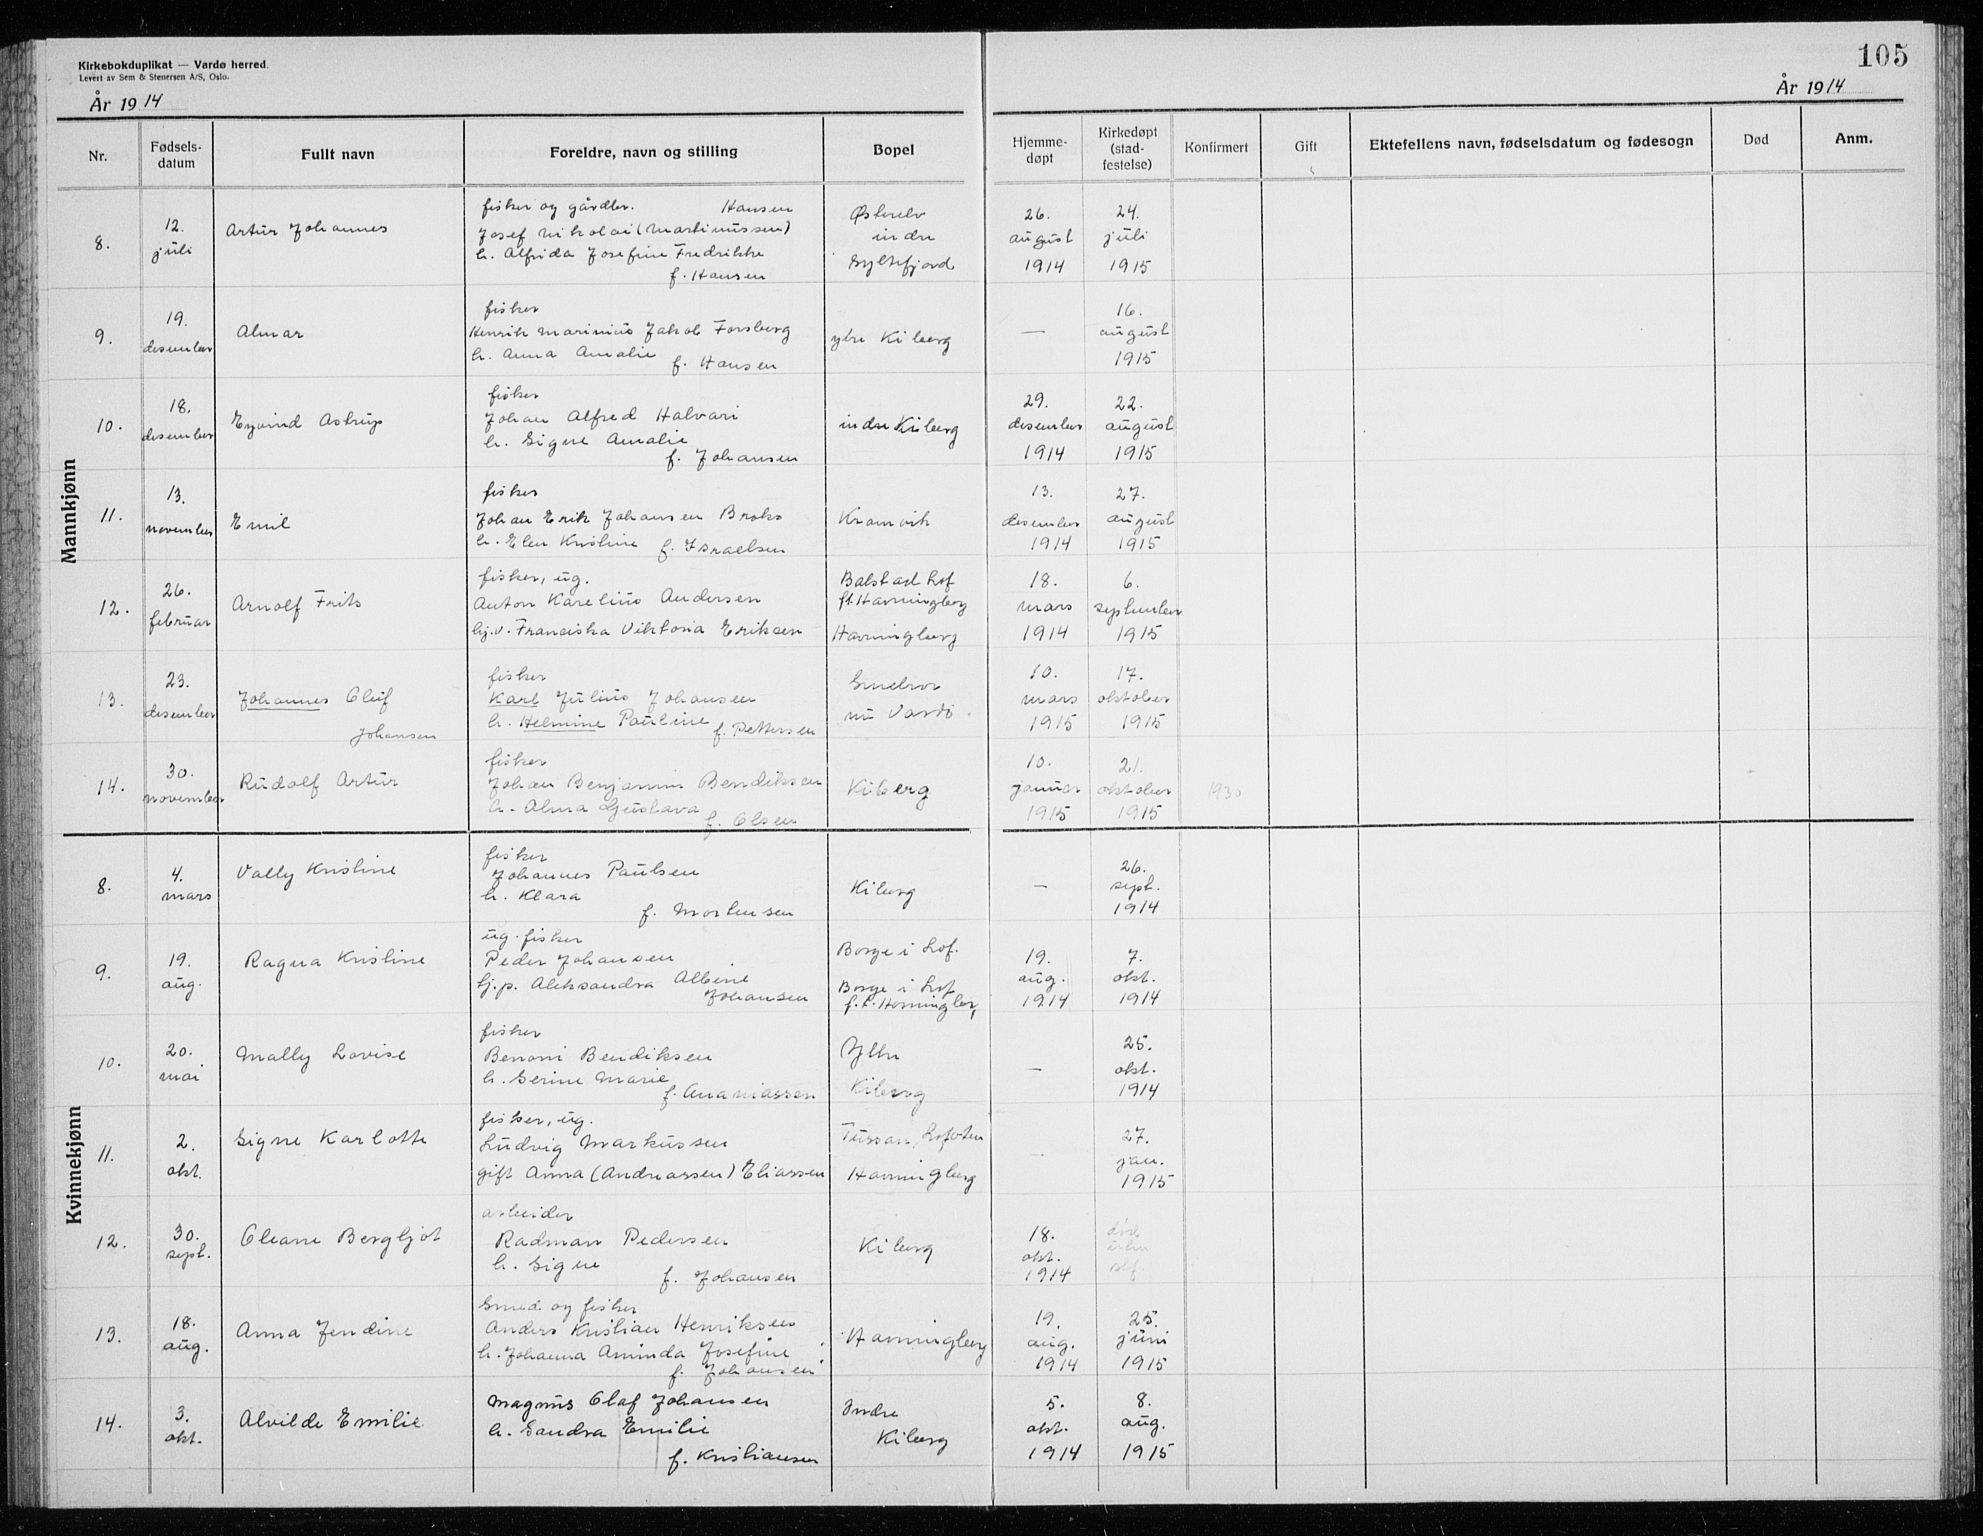 Kirkebokduplikat — Vardø herred.
Levert av Sem & Stenersen A/S, Oslo.
105
År 1914
År 1914
Nr.
Fødsels-
datum
Fullt navn
Foreldre, navn og stilling
Bopel
Hjemme-
døpt
Kirkedøpt
(stad-
festelse)
Konfirmert
Gift
Ektefellens navn, fødselsdatum og fødesogn
Død
Anm.
Mannkjønn
8.
12.
juli
Artur Johannes
fisker og gårdbr. Hansen
Josef Nikolai (Martinussen)
h. Alfrida Josefine Fredrikke
f. Hansen
Østerelv
indre
Syltefjord
26.
august
1914
24.
juli
1915
9.
19.
desember
Almar
fisker
Henrik Marinius Jakob Forsberg
h. Anna Amalie
f. Hansen
ytre Kiberg
—
16.
august
1915
10.
18.
desember
Eyvind Astrup
fisker
Johan Alfred Halvari
h. Signe Amalie
f. Johansen
indre Kiberg
29.
desember
1914
22.
august
1915
11.
13.
november
Emil
fisker
Johan Erik Johansen Broks
h. Elen Kristine f. Israelsen
Kramvik
13.
desember
1914
27.
august
1915
12.
26.
februar
Arnolf Frits
fisker, ug.
Anton Karelius Andersen
pj.v. Franciska Viktoria Eriksen
Balstad Lof
ft. Havningberg
Havningberg
18.
mars
1914
6.
september
1915
13.
23.
desember
Johannes Oluf
Johansen
fisker
Karl Julius Johansen
h. Helmine Pauline f. Pettersen
nu Vardø.
10.
mars
1915
17.
oktober
1915
14.
30.
november
Rudolf Artur
fisker
Johan Benjamin Bendiksen
h. Alma Gustava
f. Olsen
Kiberg
10.
januar
1915
21.
oktober
1915
1930
Kvinnekjønn
8.
4.
mars
Vally Kristine
fisker
Johannes Paulsen
h. Klara
f. Mortensen
Kiberg
—
26.
sept.
1914
9.
19.
aug.
Ragna Kristine
ug. fisker
Peder Johansen
pj.p. Aleksandra Albine
Johansen
Borge i Lof.
Borge i Lof
f.t. Havningberg
19.
aug.
1914
7.
okt.
1914
10.
20.
mai
Mally Lovise
fisker
Benoni Bendiksen
h. Serine Marie
f. Ananiassen
Ytre
Kiberg
—
25.
okt.
1914
11.
2.
okt.
Signe Karlotte
fisker, ug.
Ludvig Markussen
gift Anna (Andreassen) Eliassen
Tussan, Lofoten
Havningberg
—
27.
jan.
1915
12.
30.
sept.
Oleane Bergljot
arbeider
Radman Pedersen
h. Signe
f. Johansen
Kiberg
18.
okt.
1914
død
uten
stf.
13.
18.
aug.
Anna Jendine
Smed og fisker
Anders Kristian Henriksen
h. Johanna Aminda Josefine
f. Johansen
Havningberg
19.
aug.
1914
25.
juni
1915
14.
3.
okt.
Alvilde Emilie
Magnus Olaf Johansen
h. Sandra Emilie
f. Kristiansen
Indre
Kiberg
5.
okt.
1914
8.
aug.
1915